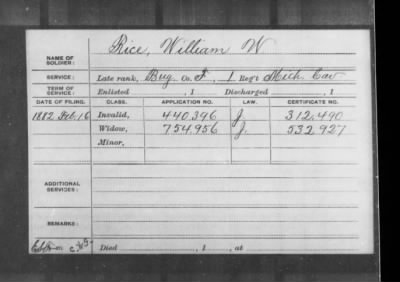 NAME OF SOLDIER: Rice, William W
SERVICE: Late rank, Bug. Co. F, 1 Reg't Mich. Cav
TERM OF SERVICE: Enlisted , 1 Discharged , 1
DATE OF FILING. CLASS. APPLICATION NO. LAW. CERTIFICATE NO.
1882 Feb. 16 Invalid, 440,396 J. 312,490
Widow, 754,956 J. 532,927
Minor,
ADDITIONAL SERVICES:
REMARKS:
Died , 1 , at